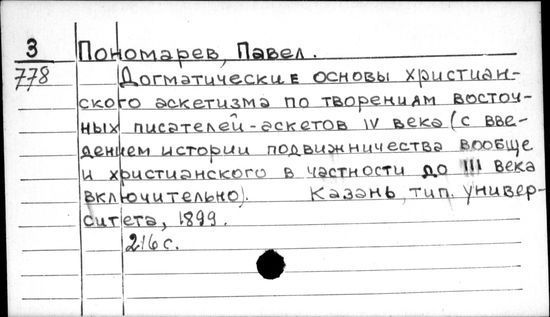 3 Пономарев, Павел.
778 Догматические основы христиан-
ского аскетизма по творениям восточ-
ных писателей-аскетов IV века (с вве-
дением истории подвижничества вообще
и христианского в частности до III века
включительно). Казань, тип. универ-
ситета, 1899.
216 с.